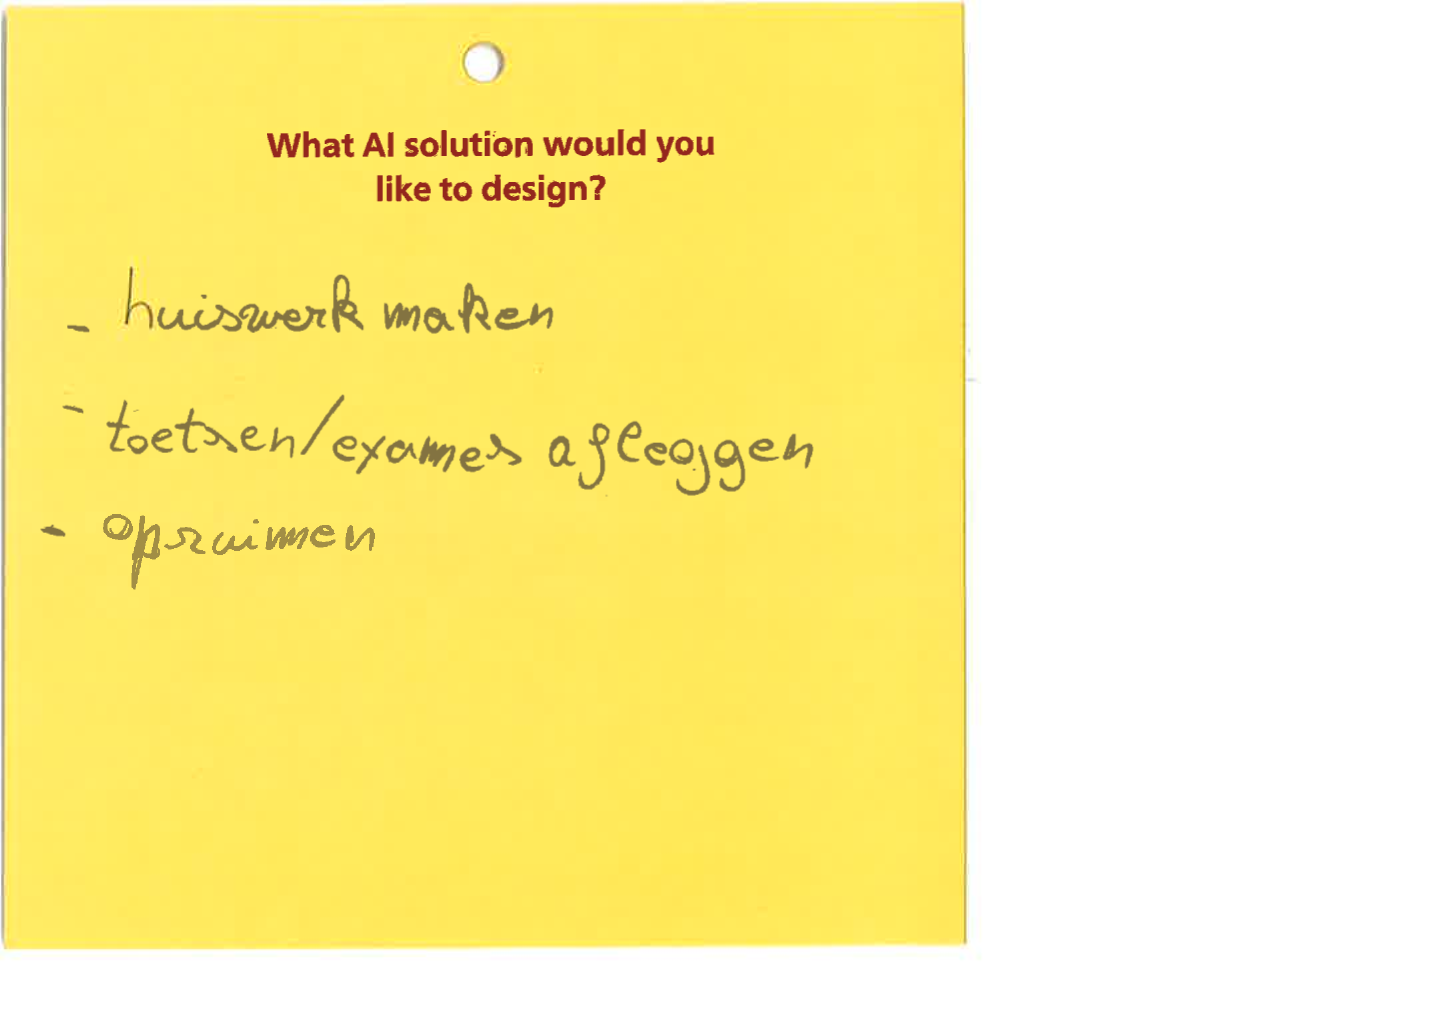 What AI solution would you
like to design?
- huiswerk maken
- toetsen/exames afleggen
- opruimen